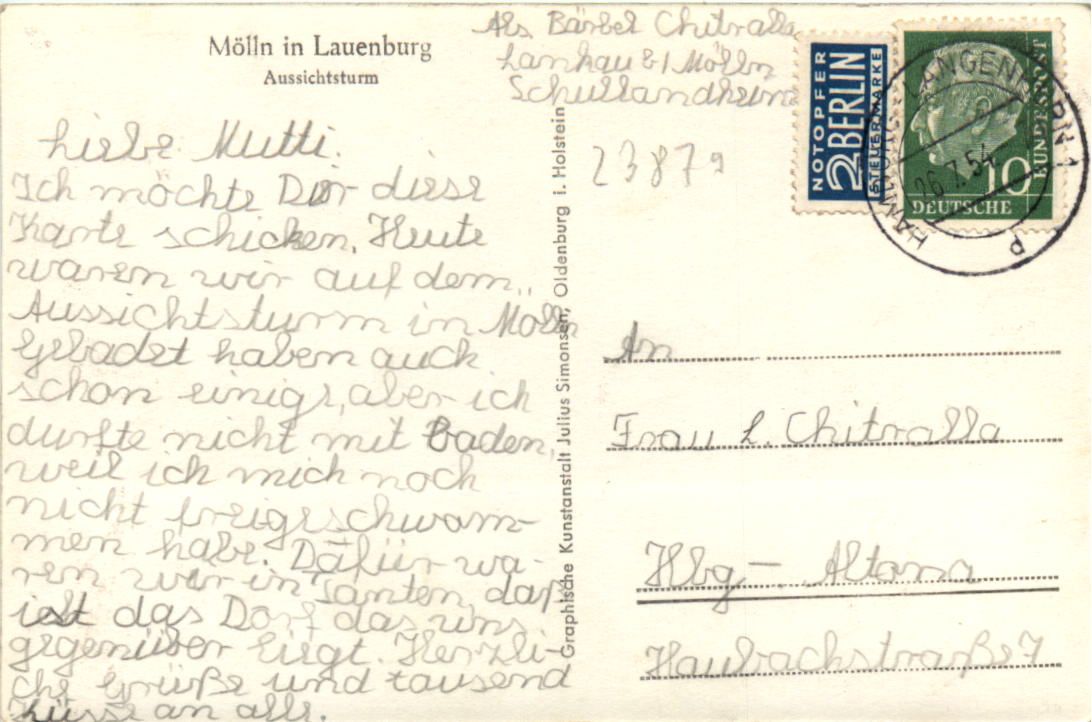 Mölln in Lauenburg
Aussichtsturm
Abs Bärbel Chitralla
Lankau b/ Mölln
Schullandheim
23879
NOTOPFER
2 BERLIN
STEUERMARKE
DEUTSCHE
BUNDESPOST
10
HAMBURG-LANGENHORN 1
26.7.54
p
Liebe Mutti.
Ich möchte Dir diese
Karte schicken. Heute
waren wir auf dem
Aussichtsturm in Mölln
Gebadet haben auch
schon einige, aber ich
durfte nicht mit Baden,
weil ich mich noch
nicht freigeschwom-
men habe. Dafür wa-
ren wir in Panten, daß
ist das Dorf das uns
gegenüber liegt. Herzli-
che Grüße und tausend
Küsse an alle.
Graphische Kunstanstalt Julius Simonsen, Oldenburg i. Holstein
An
Frau L. Chitralla
Hbg.- Altona
Haubachstraße 7